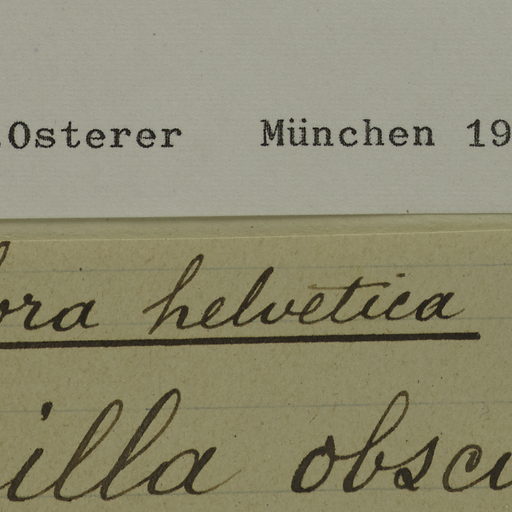 .Osterer München 19
ora helvetica
illa obscu